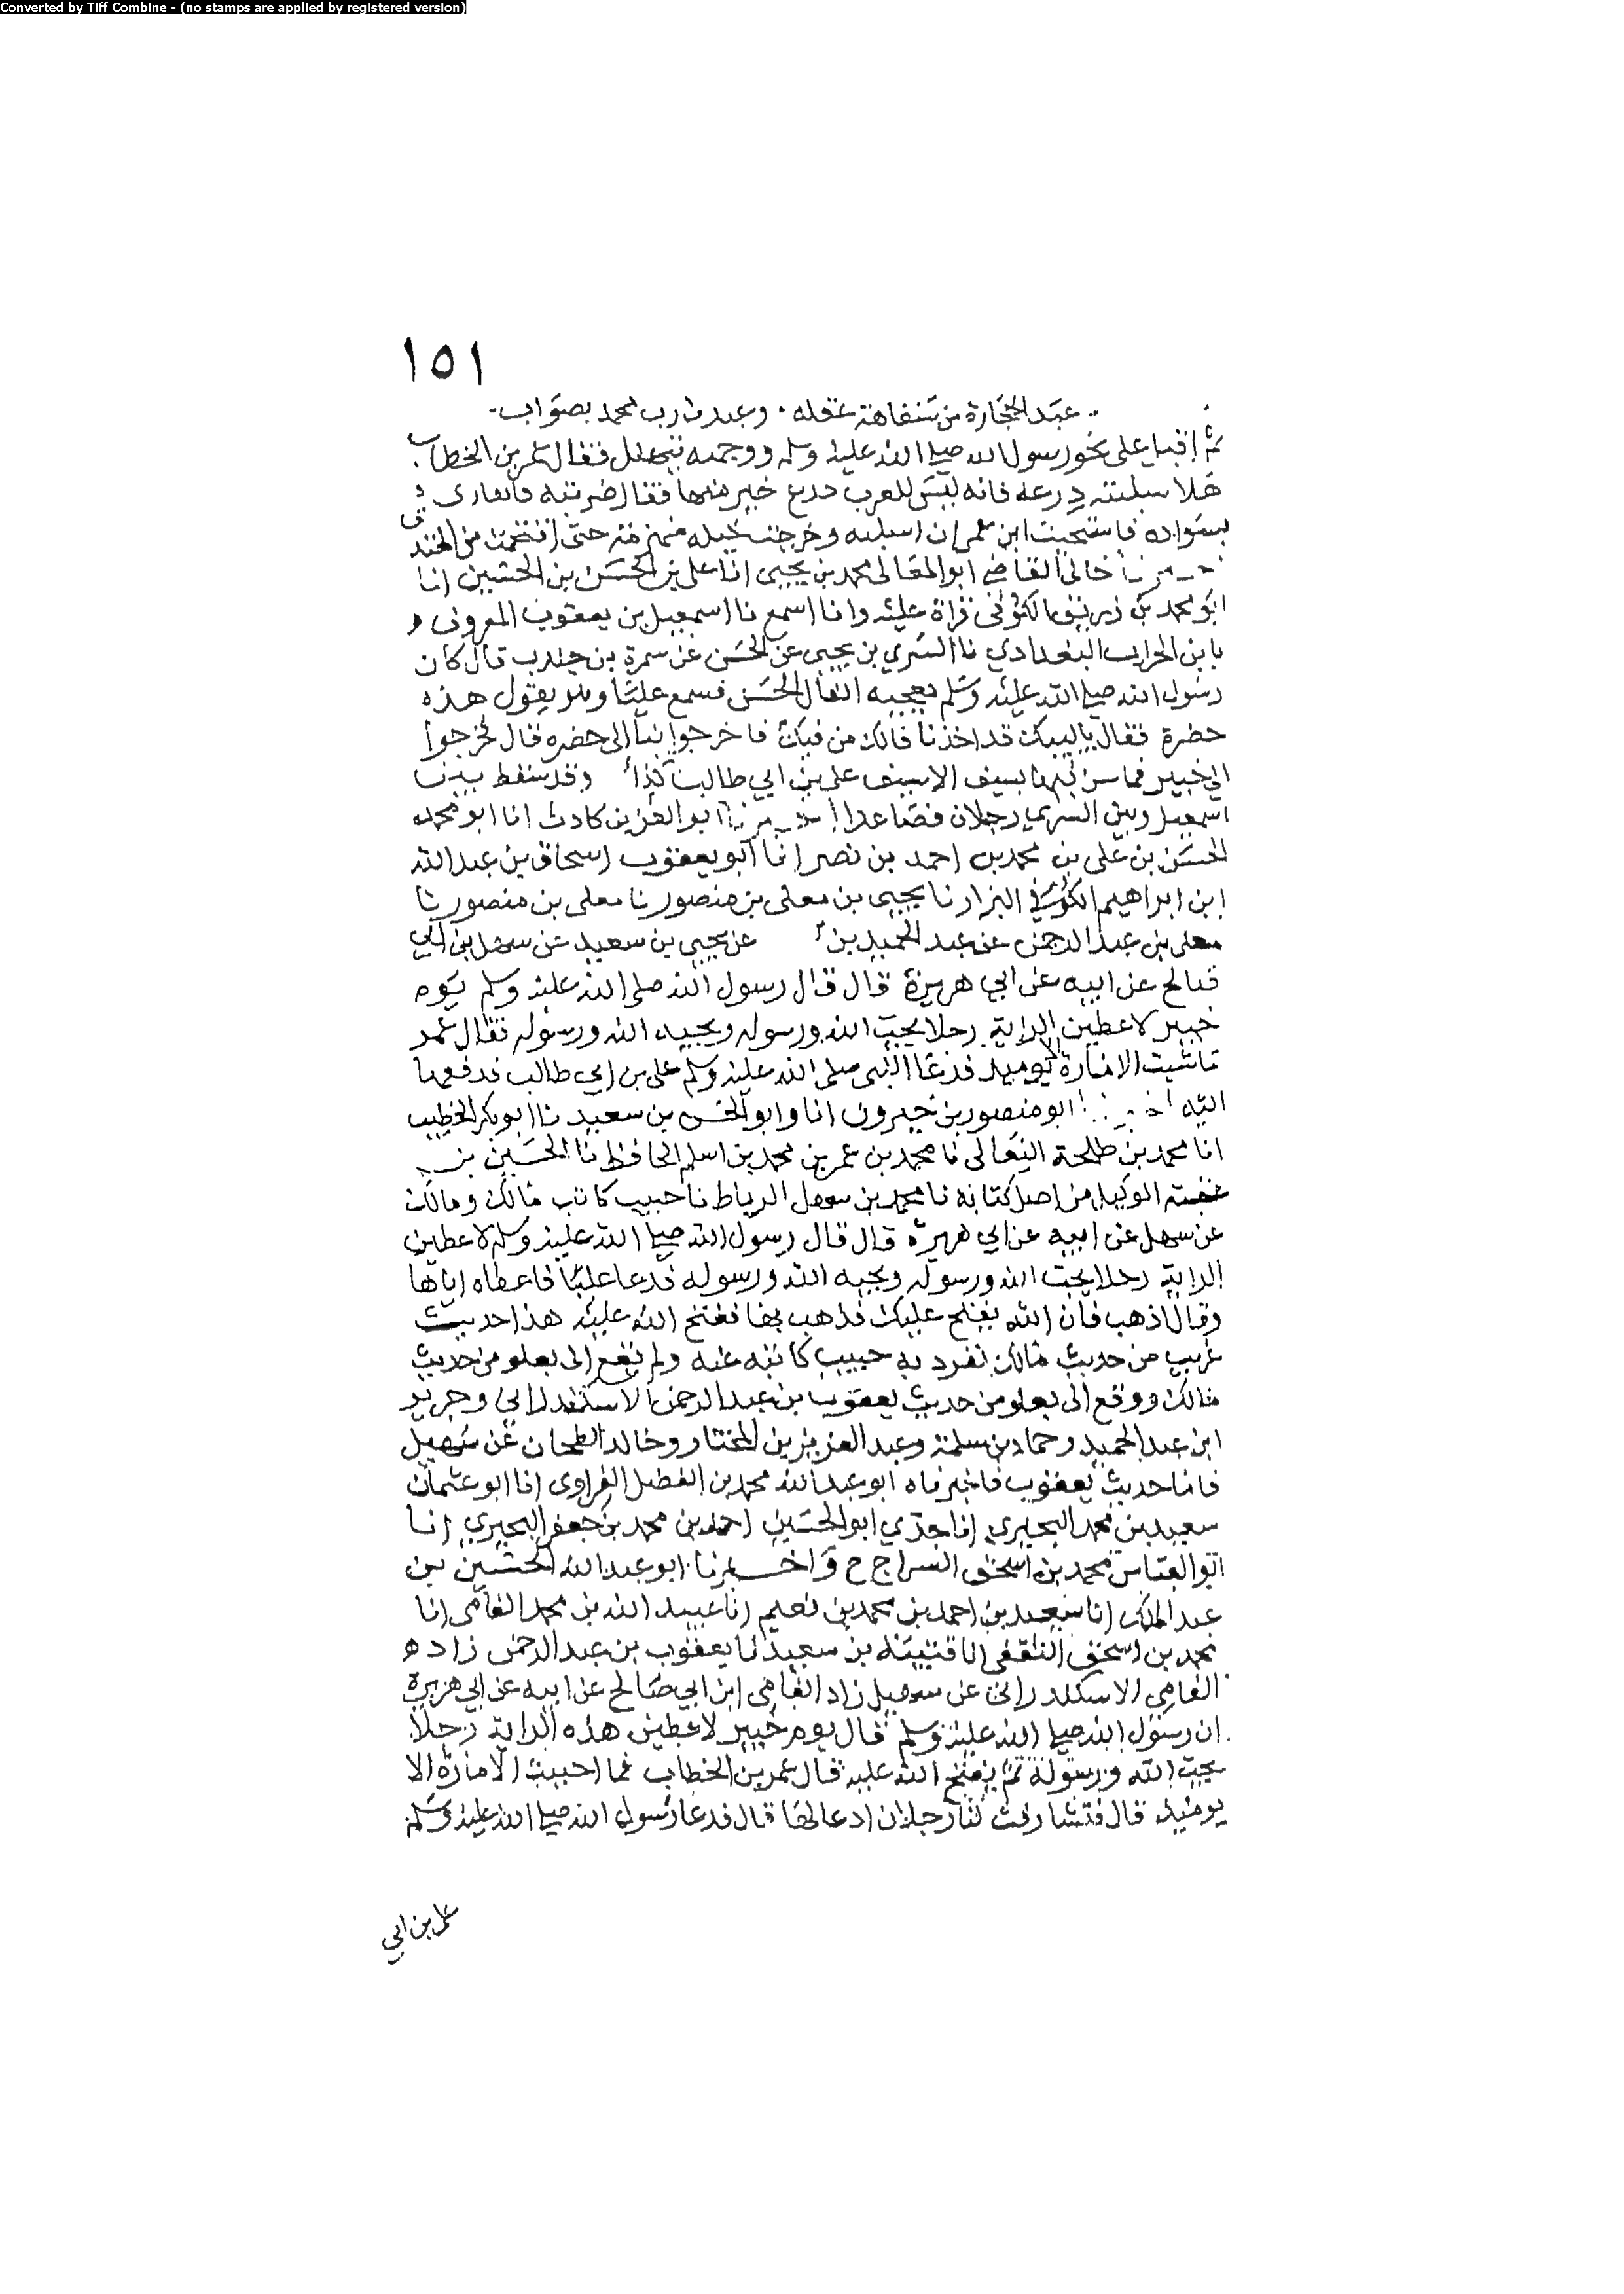 Converted by Tiff Combine - (no stamps are applied by registered version)
١٥١
عبد الحجارة من سفاهة عقله ٠ وعبدت رب محمد بصواب
ثم اقبل علي نحو رسول الله صلى الله عليه وسلم ووجهه يتهلل فقال عمر بن الخطاب
هلا سلبته درعه فانه ليس للعرب درع خير منها فقال ضربته فاتقاني
بسواده فاستحييت ابن عمي ان اسلبه وخرجت خيله منهزمة حتى اقتحمت من الخندق
خالي القاضي ابو المعالي محمد بن يحيى انا علي بن الحسن بن الحسين انا
ابو محمد بن الكوفي قراة عليه وانا اسمع نا اسمعيل بن يعقوب المعروف
بابن الجراب البغدادي نا السري بن يحيى عن الحسن عن سمرة بن جندب قال كان
رسول الله صلى الله عليه وسلم يعجبه الفال الحسن فسمع عليا وهو يقول هذه
خضرة فقال يا لبيك قد اخذنا فالك من فيك فاخرجوا بنا الى خضره قال فخرجوا
الى خيبر فما سل فيها سيف الا سيف علي بن ابي طالب كذا وقد سقط بين
اسمعيل وبين السري رجلان فصاعدا ابو العز بن كادش انا ابو محمد
الحسن بن علي بن محمد بن احمد بن نصر انا ابو يعقوب اسحاق بن عبد الله
ابن ابراهيم الكوفي البزار نا يحيى بن معلى بن منصور نا معلى بن منصور نا
معلى بن عبد الرحمن عن عبد الحميد بن عن يحيى بن سعيد عن سهل بن ابي
صالح عن ابيه عن ابي هريرة قال قال رسول الله صلى الله عليه وسلم يوم
خيبر لاعطين الراية رجلا يحب الله ورسوله ويحبه الله ورسوله فقال عمر
ما شيت الامارة الا يوميذ فدعا النبي صلى الله عليه وسلم علي بن ابي طالب فدفعها
اليه ابو منصور بن خيرون انا وابو الحسن بن سعيد نا ابو بكر الخطيب
انا محمد بن طلحة النعالي نا محمد بن عمر بن محمد بن اسلم الحافظ نا الحسين بن
الوكيل من اصل كتابه نا محمد بن سهل الرباط نا حبيب كاتب مالك ومالك
عن سهل عن ابيه عن ابي هريرة قال قال رسول الله صلى الله عليه وسلم لاعطين
الراية رجلا يحب الله ورسوله ويحبه الله ورسوله فدعا عليا فاعطاه اياها
وقال اذهب فان الله يفتح عليك فذهب بها ففتح الله عليه هذا حديث
غريب من حديث مالك تفرد به حبيب كاتبه عنه ولم يقع الى بعلو من حديث
مالك ووقع الى بعلو من حديث يعقوب بن عبد الرحمن الاسكندراني وجرير
ابن عبد الحميد وحماد بن سلمة وعبد العزيز بن المختار وخالد الطحان عن سهيل
فاما حديث يعقوب فاخبرناه ابو عبد الله محمد بن الفضل الفراوي انا ابو عثمان
سعيد بن محمد البحيري انا جدي ابو الحسين احمد بن محمد بن جعفر البحيري انا
ابو العباس محمد بن اسحق السراج ح واخبرنا ابو عبد الله الحسين بن
عبد الملك انا سعيد بن احمد بن محمد بن نعيم انا عبيد الله بن محمد الفامي انا
محمد بن اسحق الثقفي نا قتيبة بن سعيد نا يعقوب بن عبد الرحمن زاد
الفامي الاسكندراني عن سهيل زاد الفامي ابن ابي صالح عن ابيه عن ابي هريرة
ان رسول الله صلى الله عليه وسلم قال يوم خيبر لاعطين هذه الراية رجلا
يحب الله ورسوله ثم يفتح الله عليه قال عمر بن الخطاب فما احببت الامارة الا
يومئذ قال فتشارفت لها رجا ان ادعا لها قال فدعا رسول الله صلى الله عليه وسلم
علي بن ابي